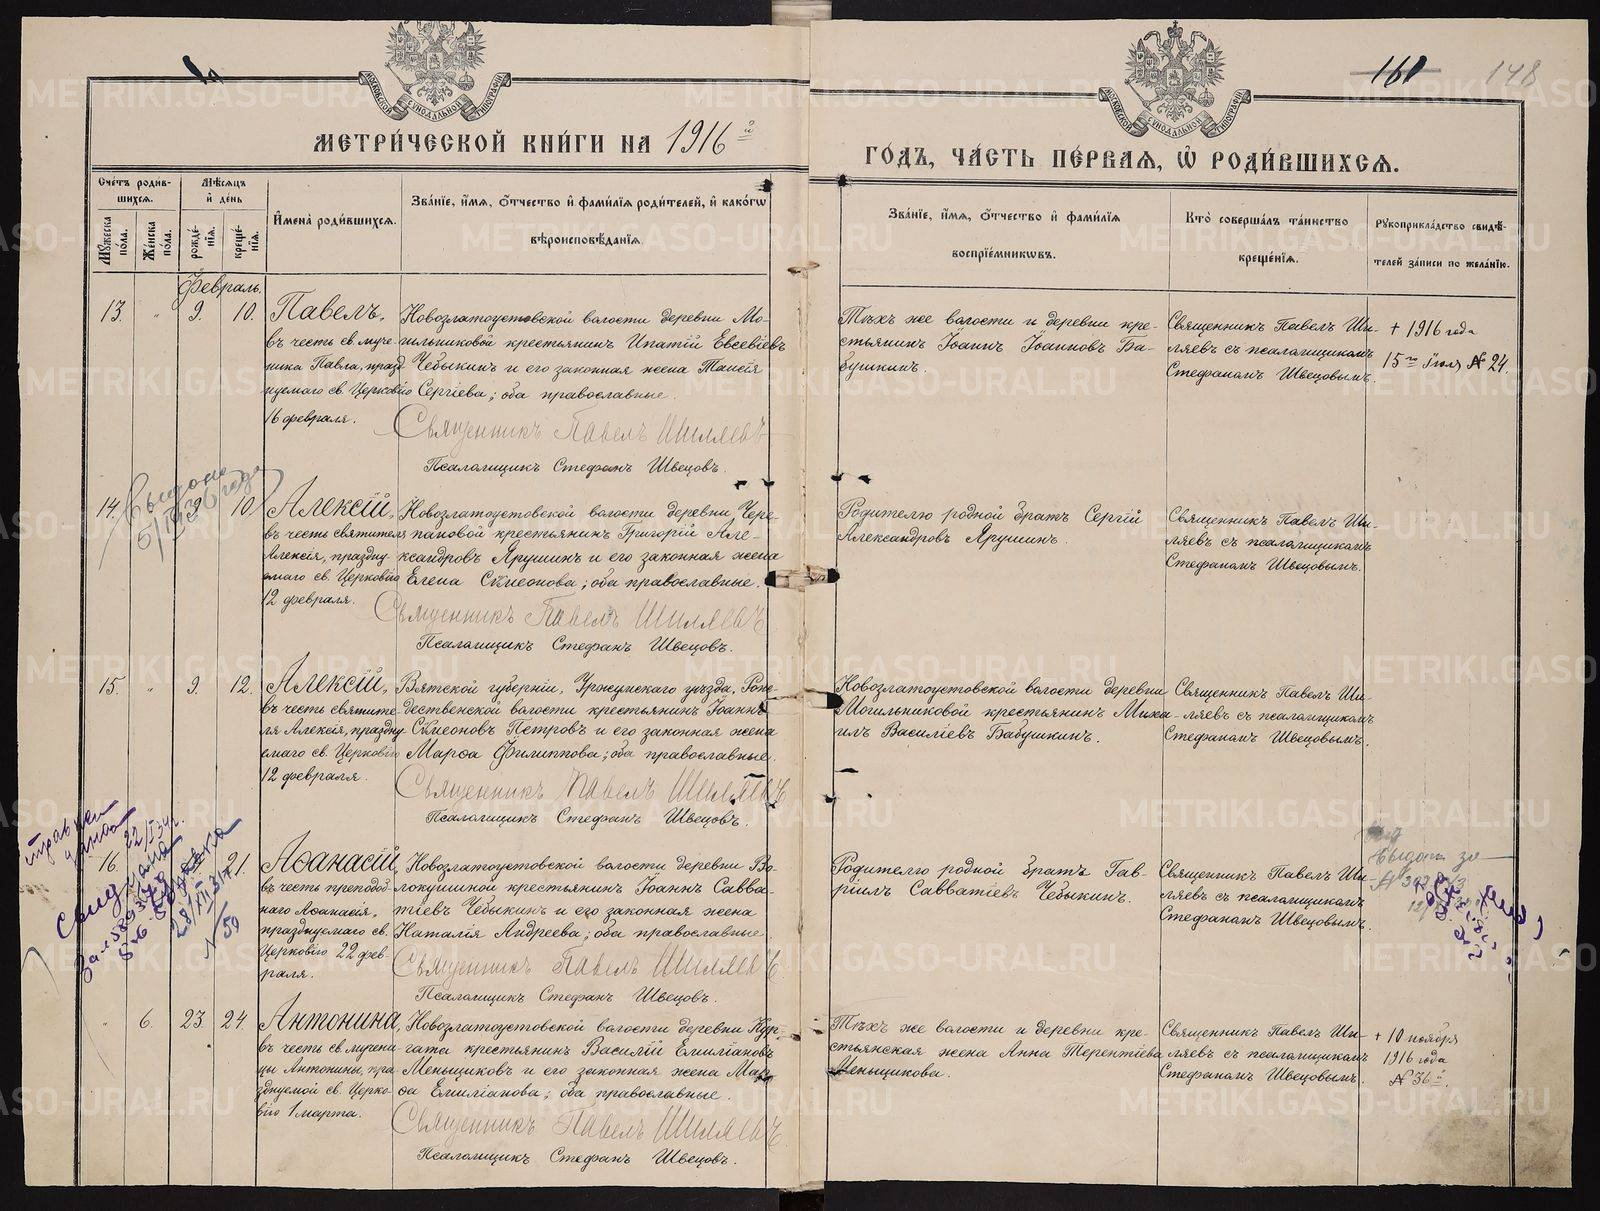 161 148
МЕТРИ́ЧЕСКОЙ КНИ́ГИ НА 1916й
ГО́ДЪ, ЧА́СТЬ ПЕ́РВАѦ, Ѡ҆ РОДИ́ВШИХСѦ.
МОСКОВСКОЙ СѴНОДАЛЬНОЙ ТИПОГРАФІИ
МОСКОВСКОЙ СѴНОДАЛЬНОЙ ТИПОГРАФІИ
Сче́тъ роди́в-
шихсѧ.
Мꙋжеска пола.
Же́нска пола.
Мѣ́сѧцъ
и҆ де́нь
рожде́-
нїѧ.
креще́-
нїѧ.
И҆мена̀ роди́вшихсѧ.
Зва́нїе, и҆́мѧ, ѻ҆́тчество и҆ фами́лїѧ роди́телей, и҆ како́гѡ
вѣроисповѣ́данїѧ.
Зва́нїе, и҆́мѧ, ѻ҆́тчество и҆ фами́лїѧ
воспрїе́мникѡвъ.
Кто̀ соверша́лъ та́инство
креще́нїѧ.
Рꙋкоприкла́дство свидѣ́-
телей за́писи по жела́нїю.
Февраль.
13. " 9. 10.
Павелъ,
въ честь св. муче-
ника Павла, празд
нуемаго св. Церковію
16 февраля.
Новозлатоустовской волости деревни Мо-
гильниковой крестьянинъ Ипатій Евсевіевъ
Чебыкинъ и его законная жена Таисія
Сергіева; оба православные.
Священникъ Павелъ Шиляевъ
Псаломщикъ Стефанъ Швецовъ.
Тѣхъ же волости и деревни кре-
стьянинъ Іоаннъ Іоанновъ Ба-
бушкинъ.
Священникъ Павелъ Ши-
ляевъ съ псаломщикомъ
Стефаномъ Швецовымъ.
+ 1916 года
15го Іюля № 24.
14. 9. 10.
Выдано
5/IV 36 года
Алексій,
въ честь святителя
Алексія, праздну-
емаго св. Церковію
12 февраля.
Новозлатоустовской волости деревни Чере-
пановой крестьянинъ Григорій Але-
ксандровъ Ярушинъ и его законная жена
Елена Сѵмеонова; оба православные.
Священникъ Павелъ Шиляевъ
Псаломщикъ Стефанъ Швецовъ.
Родителю родной братъ Сергій
Александровъ Ярушинъ.
Священникъ Павелъ Ши-
ляевъ съ псаломщикомъ
Стефаномъ Швецовымъ.
15. " 9. 12.
Алексій,
въ честь святите-
ля Алексія, праздну-
емаго св. Церковію
12 февраля.
Вятской губерніи, Уржумскаго уѣзда, Рож-
дественской волости крестьянинъ Іоаннъ
Сѵмеоновъ Петровъ и его законная жена
Марѳа Филиппова; оба православные.
Священникъ Павелъ Шиляевъ
Псаломщикъ Стефанъ Швецовъ.
Новозлатоустовской волости деревни
Могильниковой крестьянинъ Миха-
илъ Василіевъ Бабушкинъ.
Священникъ Павелъ Ши-
ляевъ съ псаломщикомъ
Стефаномъ Швецовымъ.
16 21.
Аѳанасій,
въ честь преподоб-
наго Аѳанасія,
празднуемаго св.
Церковію 22 фев-
раля.
Новозлатоустовской волости деревни Во-
локушиной крестьянинъ Іоаннъ Савва-
тіевъ Чебыкинъ и его законная жена
Наталія Андреева; оба православные.
Священникъ Павелъ Шиляевъ
Псаломщикъ Стефанъ Швецовъ.
Родителю родной братъ Гав-
ріилъ Савватіевъ Чебыкинъ.
Священникъ Павелъ Ши-
ляевъ съ псаломщикомъ
Стефаномъ Швецовымъ.
№ 50
" 6. 23. 24.
Антонина,
въ честь св. мучени-
цы Антонины, пра-
зднуемой св. Церко-
вію 1 марта.
Новозлатоустовской волости деревни Кур-
гата крестьянинъ Василій Емиліановъ
Меньщиковъ и его законная жена Мар-
ѳа Емиліанова; оба православные.
Священникъ Павелъ Шиляевъ
Псаломщикъ Стефанъ Швецовъ.
Тѣхъ же волости и деревни кре-
стьянская жена Анна Терентіева
Меньщикова.
Священникъ Павелъ Ши-
ляевъ съ псаломщикомъ
Стефаномъ Швецовымъ.
+ 10 ноября
1916 года
№ 36й.
METRIKI.GASO-URAL.RU